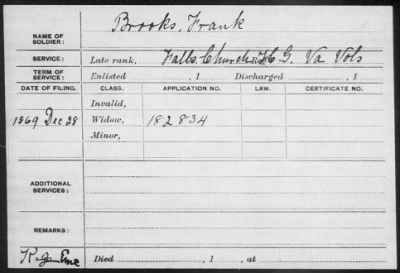 Brooks, Frank
NAME OF SOLDIER:
SERVICE: Late rank, Falls Church H. G. Va Vols
TERM OF SERVICE: Enlisted , 1 Discharged , 1
DATE OF FILING. CLASS. APPLICATION NO. LAW. CERTIFICATE NO.
Invalid,
1869 Dec 28 Widow, 182834
Minor,
ADDITIONAL SERVICES:
REMARKS:
Died , 1 , at